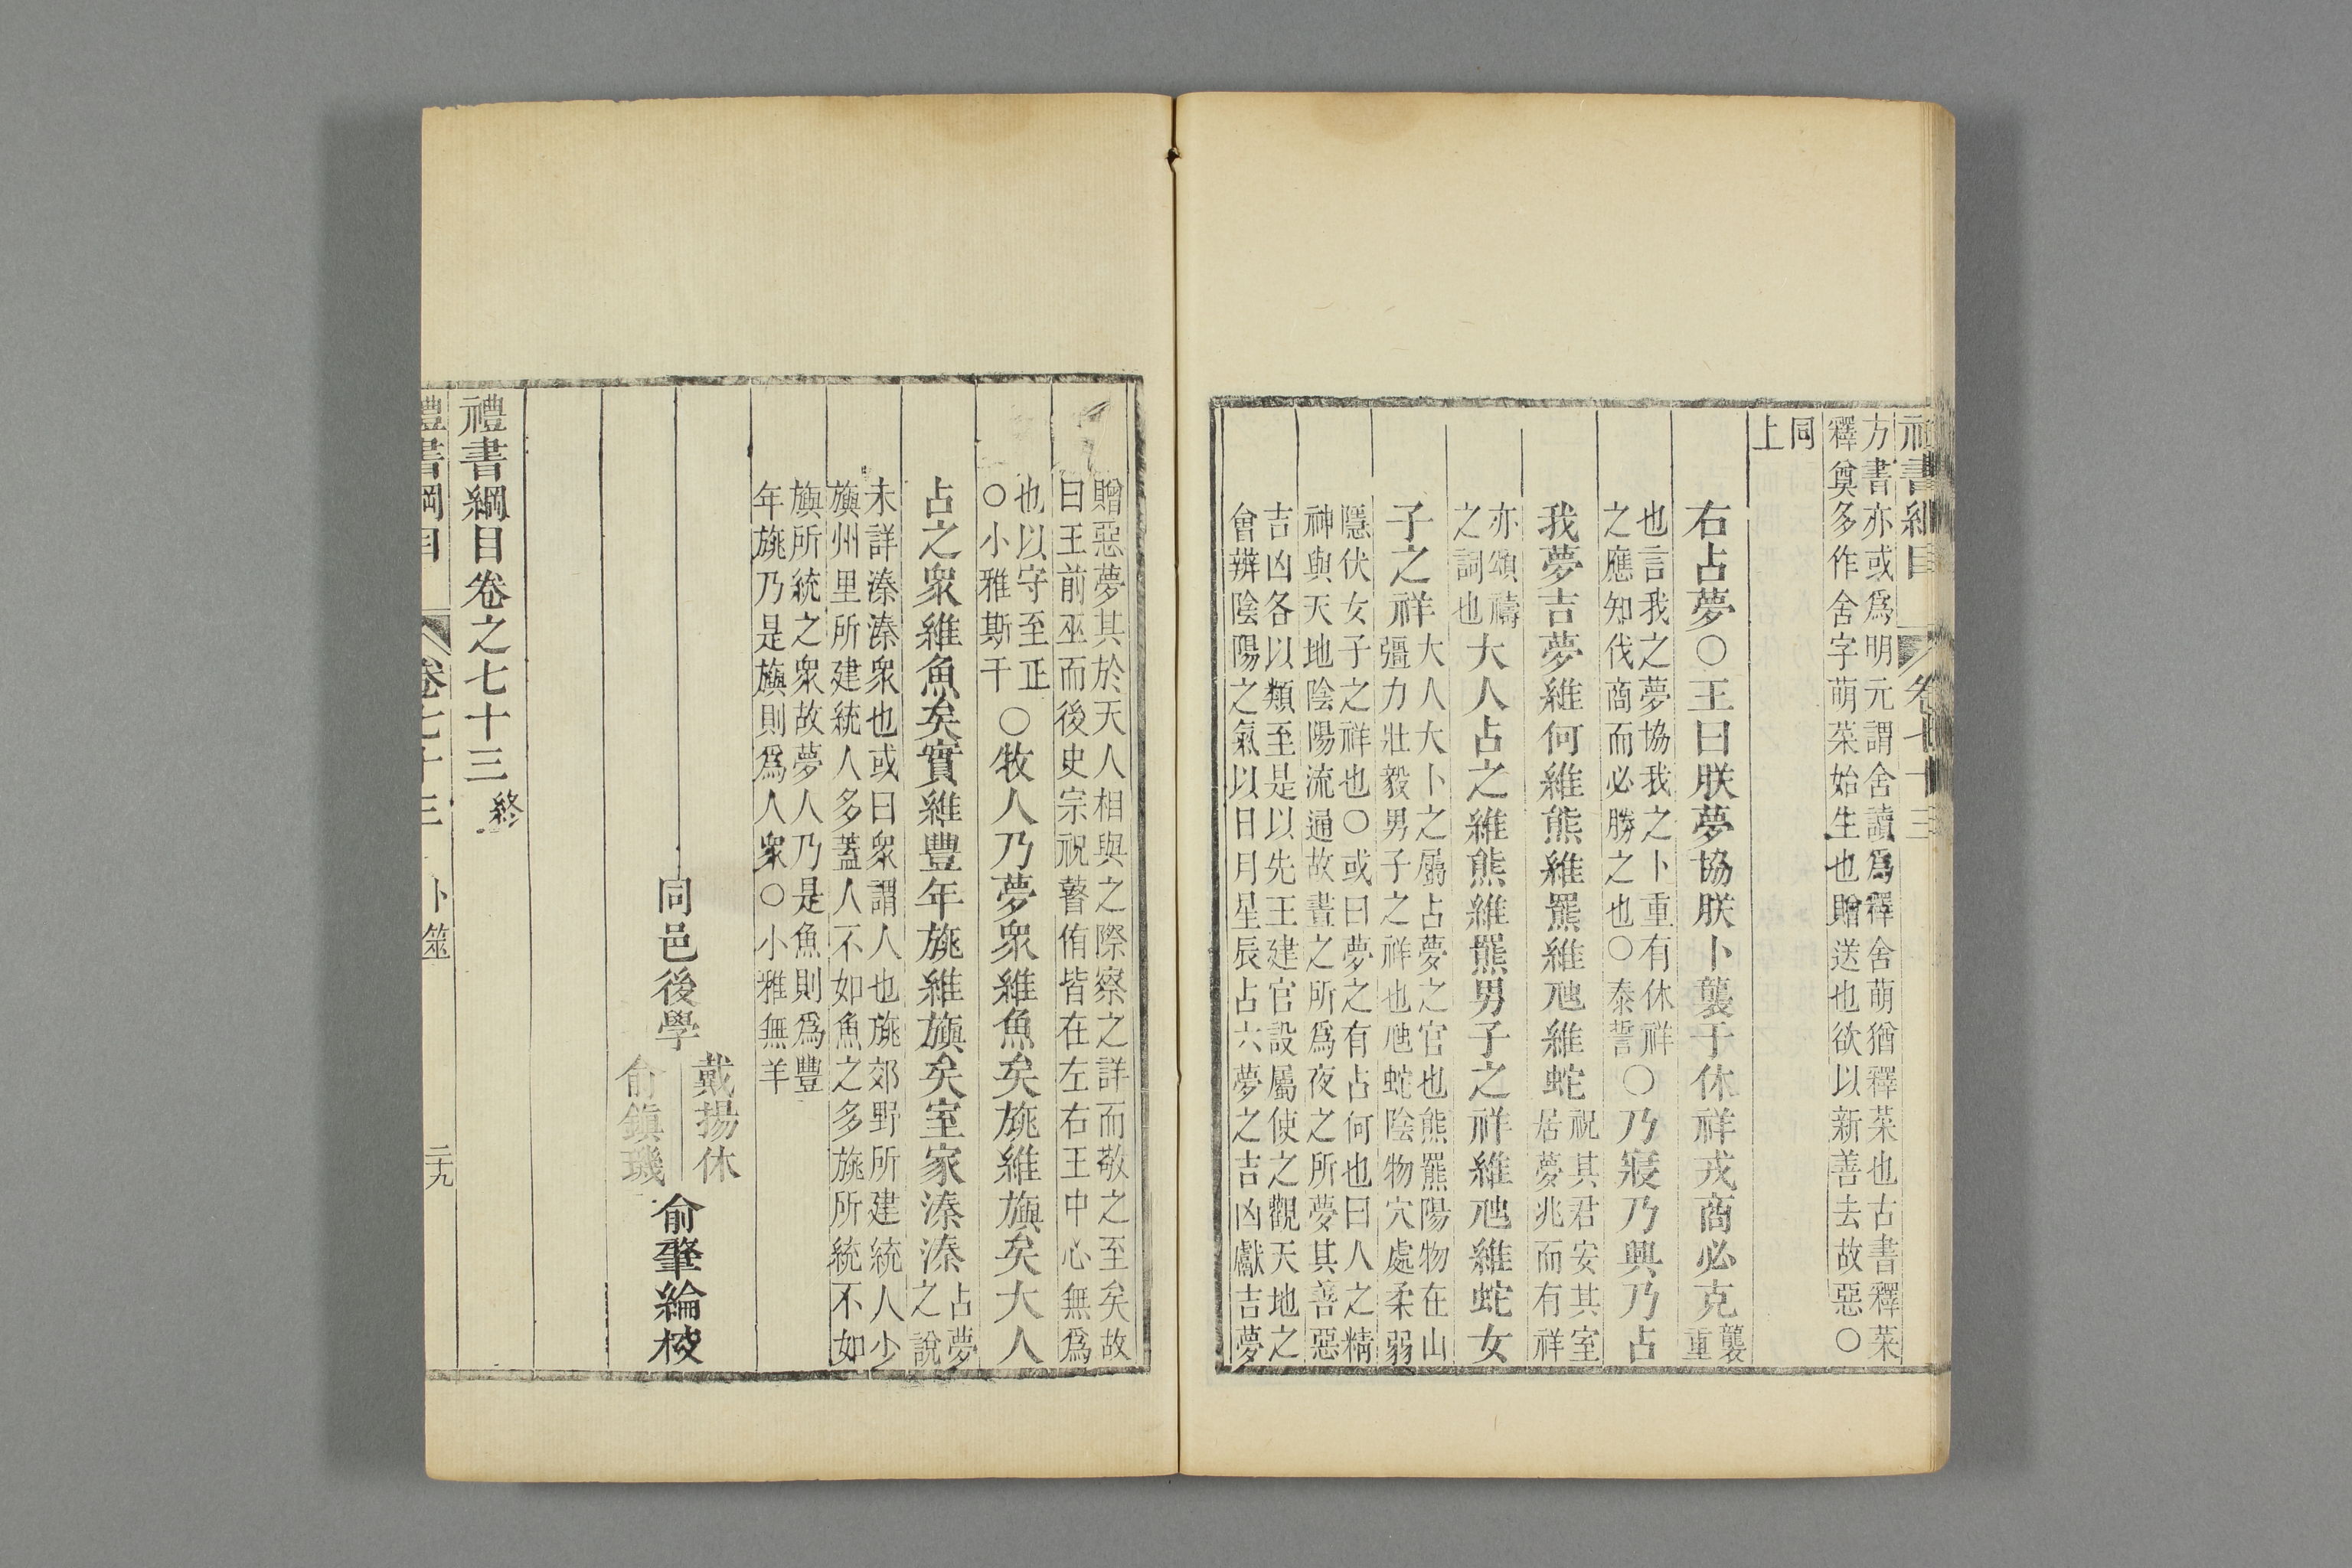 禮書綱目 卷七十三
方書亦或爲明元謂舍讀爲釋舍萌猶釋菜也古書釋菜
釋奠多作舍字萌菜始生也贈送也欲以新善去故惡○
同
上
右占夢○王曰朕夢協朕卜襲于休祥戎商必克襲
重
也言我之夢協我之卜重有休祥
之應知伐商而必勝之也○泰誓○乃寢乃興乃占
我夢吉夢維何維熊維羆維虺維蛇祝其君安其室
居夢兆而有祥
亦頌禱
之詞也大人占之維熊維羆男子之祥維虺維蛇女
子之祥大人大卜之屬占夢之官也熊羆陽物在山
彊力壯毅男子之祥也虺蛇陰物穴處柔弱
隱伏女子之祥也○或曰夢之有占何也曰人之精
神與天地陰陽流通故晝之所爲夜之所夢其善惡
吉凶各以類至是以先王建官設屬使之觀天地之
會辨陰陽之氣以日月星辰占六夢之吉凶獻吉夢
贈惡夢其於天人相與之際察之詳而敬之至矣故
曰王前巫而後史宗祝瞽侑皆在左右王中心無爲
也以守至正
○小雅斯干○牧人乃夢衆維魚矣旐維旟矣大人
占之衆維魚矣實維豐年旐維旟矣室家溱溱占夢
之說
未詳溱溱衆也或曰衆謂人也旐郊野所建統人少
旟州里所建統人多蓋人不如魚之多旐所統不如
旟所統之衆故夢人乃是魚則爲豐
年旐乃是旟則爲人衆○小雅無羊
同邑後學
戴揚休
俞鎮璣
俞肇綸校
禮書綱目卷之七十三終
禮書綱目 卷七十三 卜筮 二十九